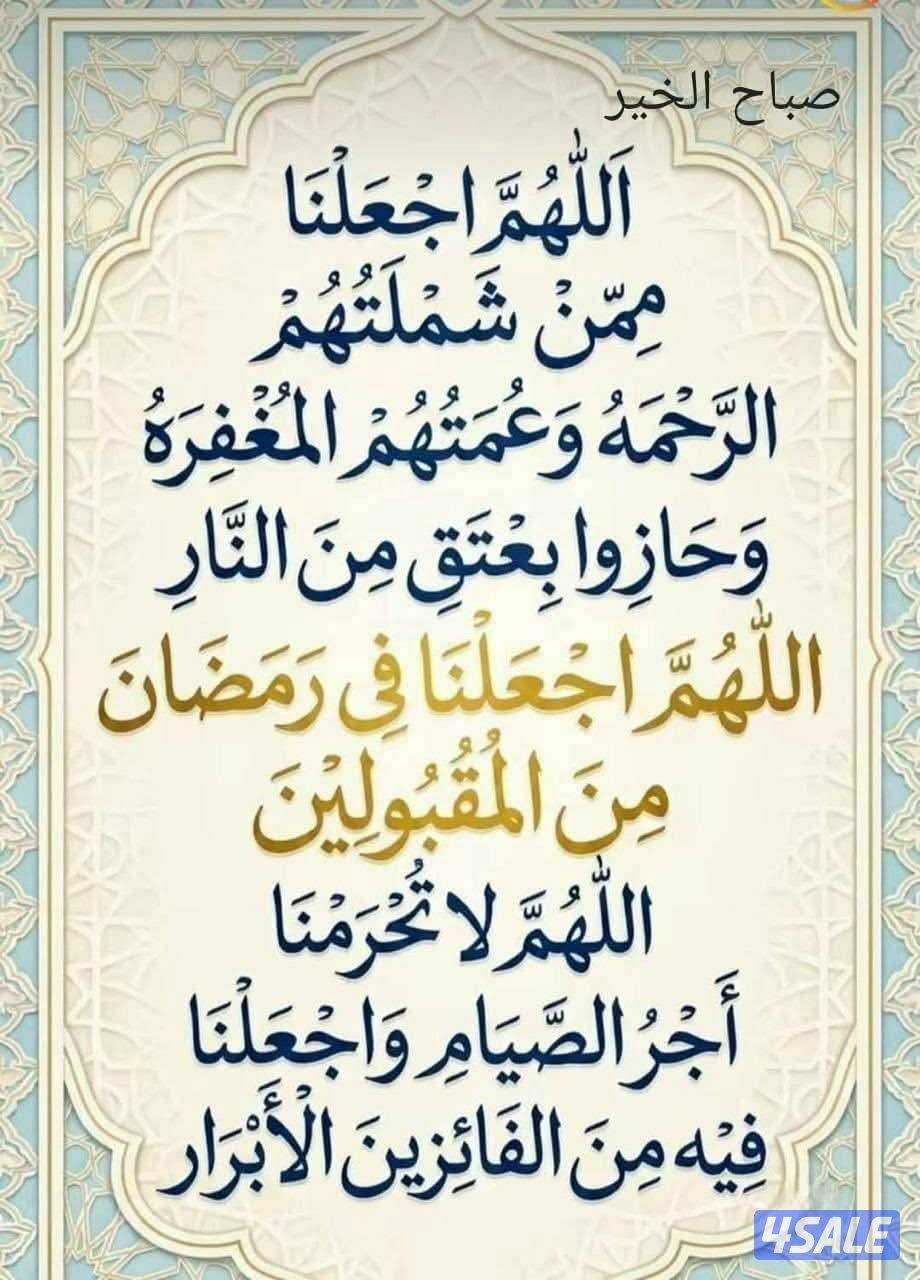 صباح الخير
اَللّٰهُمَّ اجْعَلْنَا
مِمّنْ شَمْلَتُهُمْ
الرَّحْمَهُ وَعُمَتُهُمْ المُغْفِرَهُ
وَحَازِوا بِعْتَقِ مِنَ النَّارِ
اللّٰهُمَّ اجْعَلْنَا فِى رَمَضَانَ
مِنَ المُقُبُولِيْنَ
اللّٰهُمَّ لا تُحْرَمْنَا
أَجْرُ الصَّيَامِ وَاجْعَلْنَا
فِيْه مِنَ الفَائِزِينَ الْأَبْرَار
4SALE